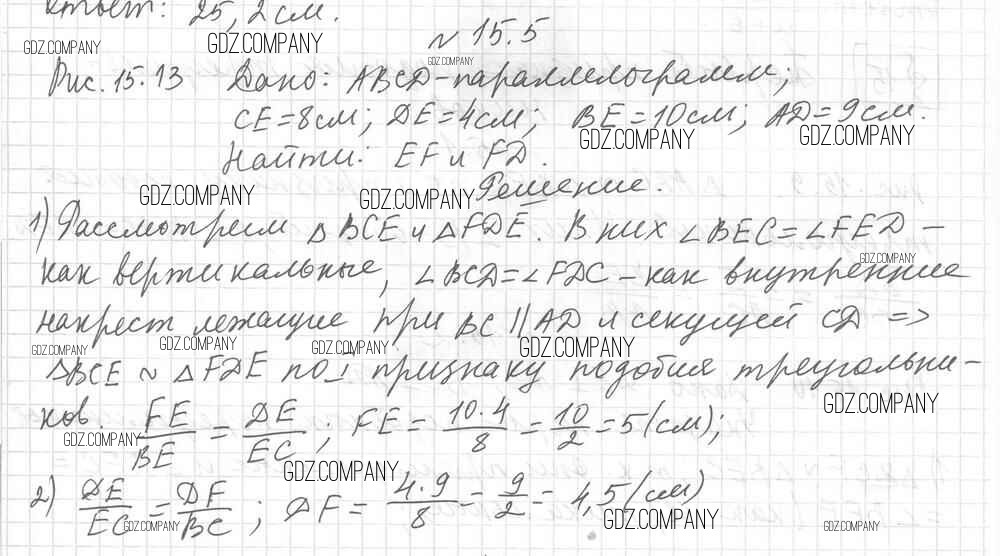 ответ: 25,2 см.
GDZ.COMPANY GDZ.COMPANY № 15.5
GDZ.COMPANY
Рис. 15.13 Дано: ABCD - параллелограмм;
CE = 8см; DE = 4см; BE = 10см; AD = 9см.
GDZ.COMPANY GDZ.COMPANY
Найти: EF и FD.
GDZ.COMPANY GDZ.COMPANY Решение.
1) Рассмотрим △ BCE и △ FDE. В них ∠BEC = ∠FED –
GDZ.COMPANY
как вертикальные, ∠BCD = ∠FDC – как внутренние
накрест лежащие при BC || AD и секущей CD =>
GDZ.COMPANY GDZ.COMPANY GDZ.COMPANY GDZ.COMPANY
△BCE ~ △ FDE по 1 признаку подобия треугольни-
GDZ.COMPANY
ков. FE/BE = DE/EC; FE = 10·4/8 = 10/2 = 5 (см);
GDZ.COMPANY
GDZ.COMPANY
2) DE/EC = DF/BC; DF = 4·9/8 = 9/2 = 4,5 (см)
GDZ.COMPANY GDZ.COMPANY GDZ.COMPANY